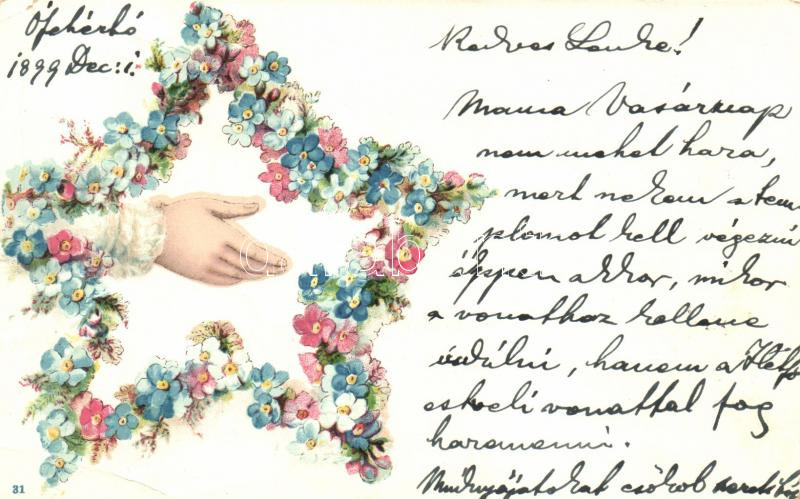 Ófehértó
1899 Dec: 1.
Kedves Lenke!
Mama Vasárnap
nem mehet haza,
mert nekem a tem
plomot kell végezni
éppen akkor, mikor
a vonathoz kellene
indúlni, hanem a Hétfő
esteli vonattal fog
hazamenni.
Mindnyájatokat csókol
31